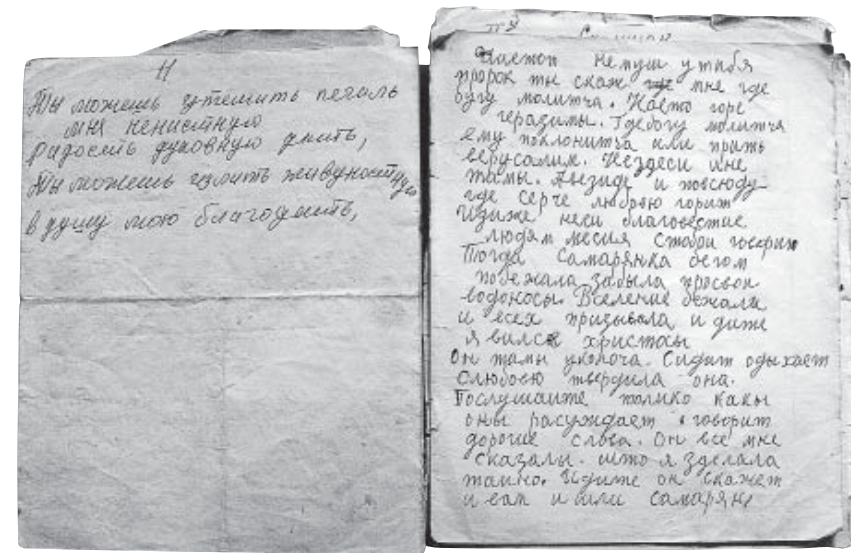 11
Ты можешь утешить печаль
мня ненистную
Радость духовную дпить,
Ты можешь излить живуюструю
в душу мою благодать,
немуш утибя
пророк ты скаж мне где
бугу молитча. Насто горе
геразимы. Где богу молитчя
ему поклонитча или прать
верусалим. Нездеси ине
тамы. Авизде и повсюду
где серче любвою горит
Идиже неси благовестие
людям месия стобои говорит
Тогда самарянка бегом
побежала забыла просвои
водоносы. Вселение бежала
и всех призывала и диже
явился христосы
Он тамы уколоча. Сидит одыхает
слюбовю твердила она.
Послушаите толико какы
оны расуждает говорит
дорогие слова. Он все мне
сказалы. што я зделала
таино. Идите он скажет
и вам и шли самаряне